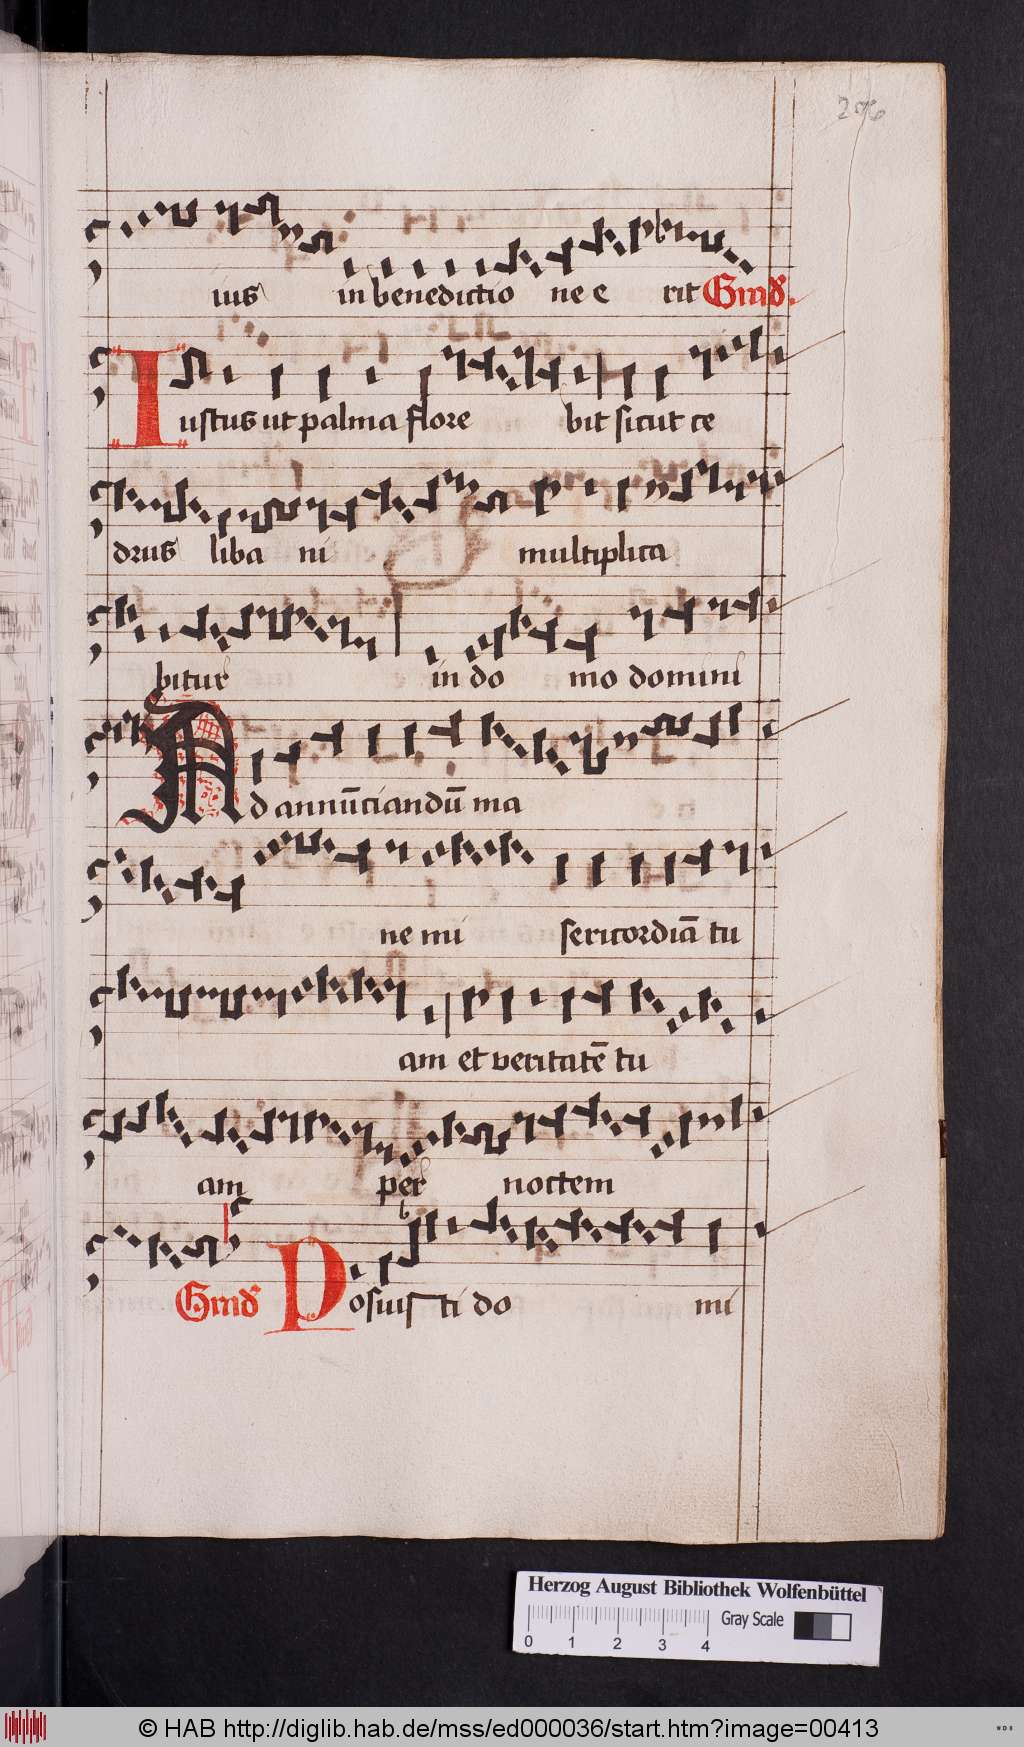 296
ius in benedictio ne e rit Grad.
Iustus ut palma flore bit sicut ce
drus liba ni multiplica
bitur in do mo domini
Ad annūciandū ma
ne mi sericordiā tu
am et veritatē tu
am per noctem
Grad Posuisti do mi
Herzog August Bibliothek Wolfenbüttel
Gray Scale
0 1 2 3 4
© HAB http://diglib.hab.de/mss/ed000036/start.htm?image=00413
WDB